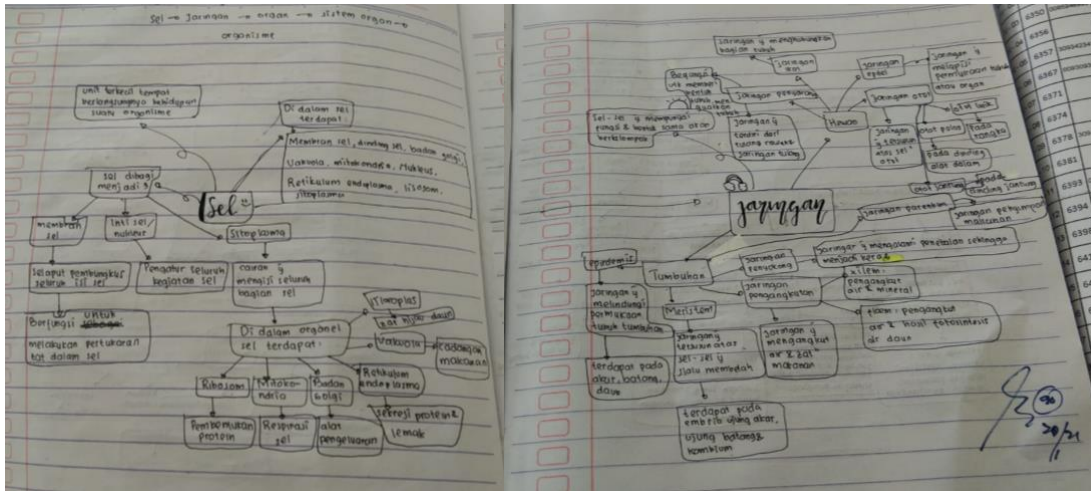 Sel → Jaringan → organ → sistem organ →
organisme
unit terkecil tempat
berlangsungnya kehidupan
suatu organisme
Di dalam sel
terdapat:
Membran sel, dinding sel, badan golgi,
Vakuola, mitokondria, Nukleus,
Retikulum endoplasma, lisosom,
sitoplasma
Sel
sel dibagi
menjadi 3
membran
sel
Inti sel/
nukleus
Sitoplasma
selaput pembungkus
seluruh isi sel
Pengatur seluruh
kegiatan sel
cairan yg
mengisi seluruh
bagian sel
Berfungsi untuk
melakukan pertukaran
zat dalam sel
Di dalam organel
sel terdapat:
zat hijau daun
Vakuola
cadangan
makanan
Retikulum
endoplasma
sekresi protein &
lemak
Ribosom
Mitoko-
ndria
Badan
Golgi
Pembentukan
protein
Respirasi
sel
alat
pengeluaran
Jaringan yg menghubungkan
bagian tubuh
Jaringan
ikat
Jaringan
epitel
Jaringan yg
melapisi
permukaan tubuh
atau organ
Jaringan penyokong
Jaringan otot
Hewan
Sel-sel yg mempunyai
fungsi & bentuk sama akan
berkelompok
Jaringan yg
terdiri dari
tulang rawan &
jaringan tulang
Jaringan
yg tersusun
atas sel"
otot
otot polos
Pada
rangka
Pada dinding
alat dalam
otot jantung
pada
dinding jantung
jaringan
Jaringan parenkim
Jaringan penyimpan
makanan
epidermis
Tumbuhan
Jaringan
penyokong
Jaringan yg mengalami penebalan sehingga
menjadi keras
Jaringan
pengangkutan
xilem:
pengangkut
air & mineral
floem: pengangkut
air & hasil fotosintesis
air daun
Jaringan yg
melindungi
permukaan
tubuh tumbuhan
Meristem
Jaringan yg
tersusun atas
sel-sel yg
slalu membelah
Jaringan yg
mengangkut
air & zat"
makanan
terdapat pada
akar, batang,
daun
terdapat pada
embrio ujung akar,
ujung batang &
kambium
6350
6356
6357
6367
6371
6374
6378
6381
6393
6394